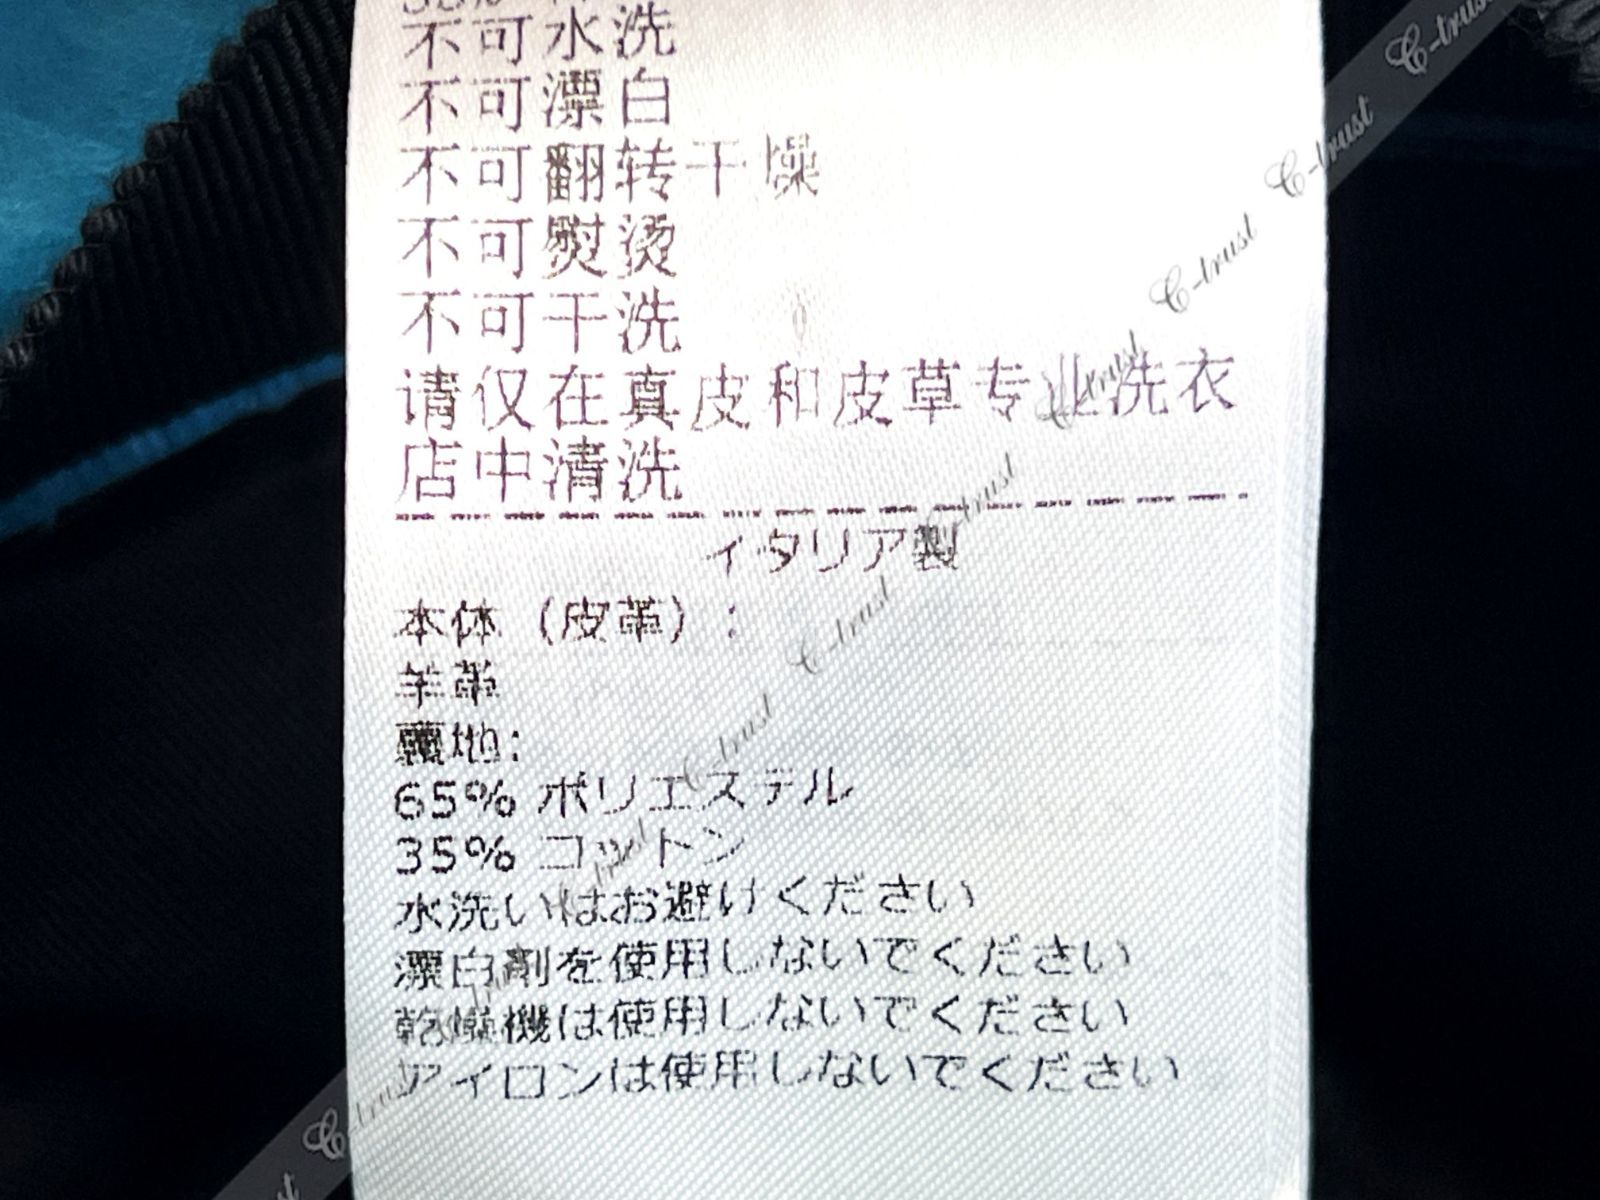 不可水洗
不可漂白
不可翻转干燥
不可熨烫
不可干洗
请仅在真皮和皮草专业洗衣
店中清洗
イタリア製
本体（皮革）:
羊革
裏地:
65% ポリエステル
35% コットン
水洗いはお避けください
漂白剤を使用しないでください
乾燥機は使用しないでください
アイロンは使用しないでください
C-trust
C-trust
C-trust
C-trust
C-trust
C-trust
C-trust
C-trust